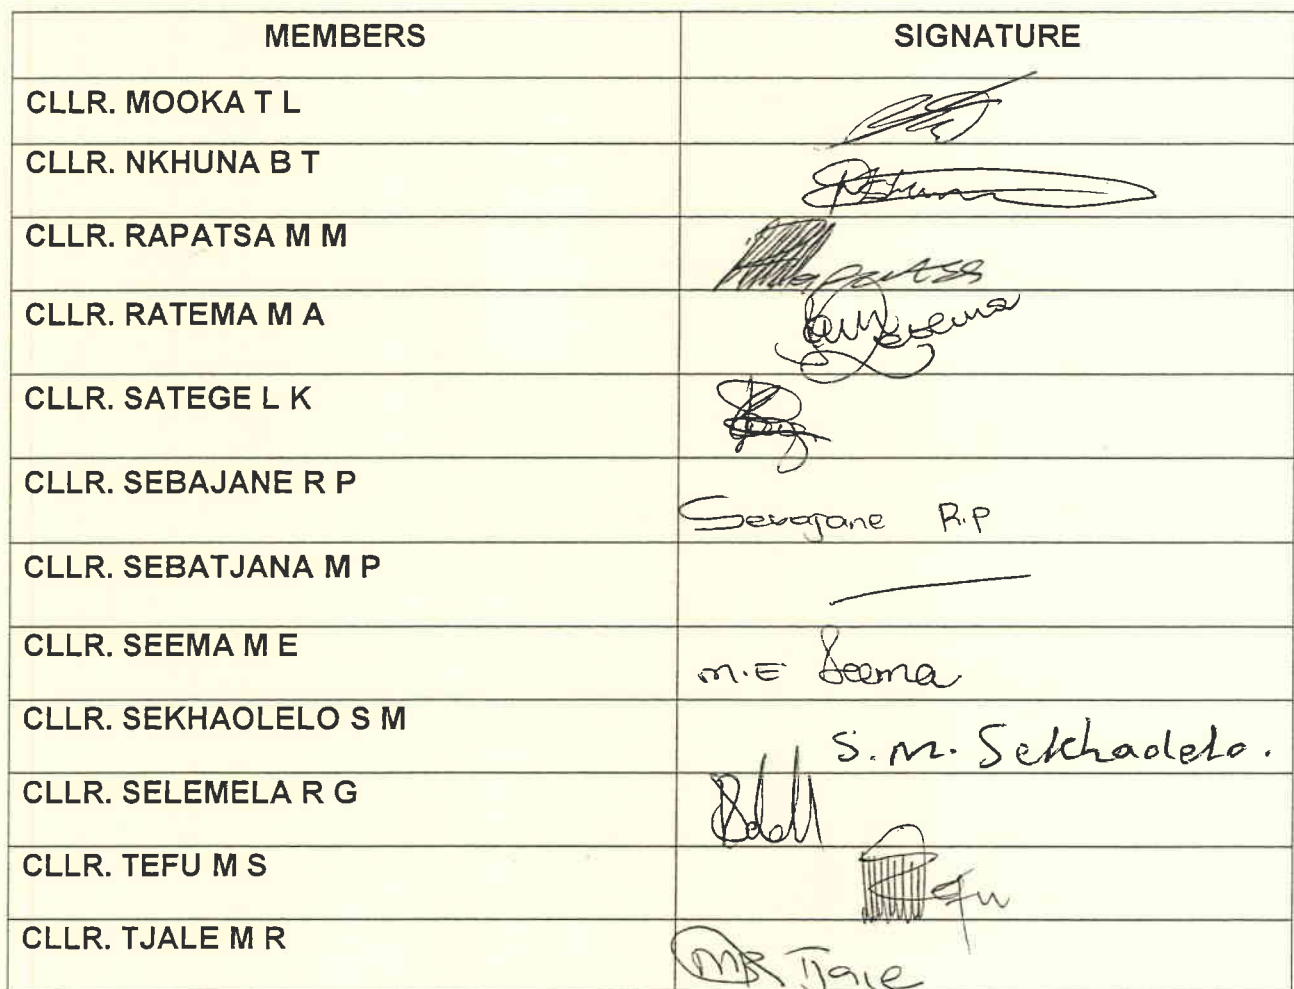 MEMBERS SIGNATURE
CLLR. MOOKA T L
CLLR. NKHUNA B T
CLLR. RAPATSA M M
CLLR. RATEMA M A
CLLR. SATEGE L K
CLLR. SEBAJANE R P
Sebajane R.P
CLLR. SEBATJANA M P
CLLR. SEEMA M E
M.E Seema
CLLR. SEKHAOLELO S M
S.M. Sekhaolelo.
CLLR. SELEMELA R G
CLLR. TEFU M S
CLLR. TJALE M R
MR Tjale